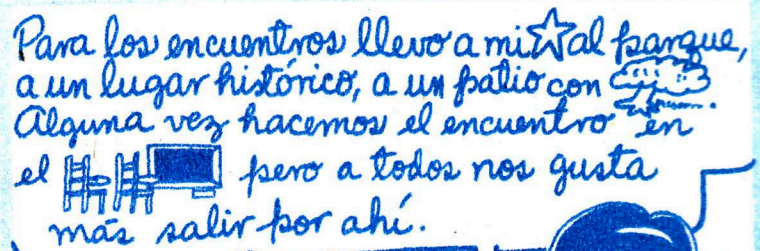 Para los encuentros llevo a mi al parque,
a un lugar histórico, a un patio con
Alguna vez hacemos el encuentro en
el pero a todos nos gusta
más salir por ahí.